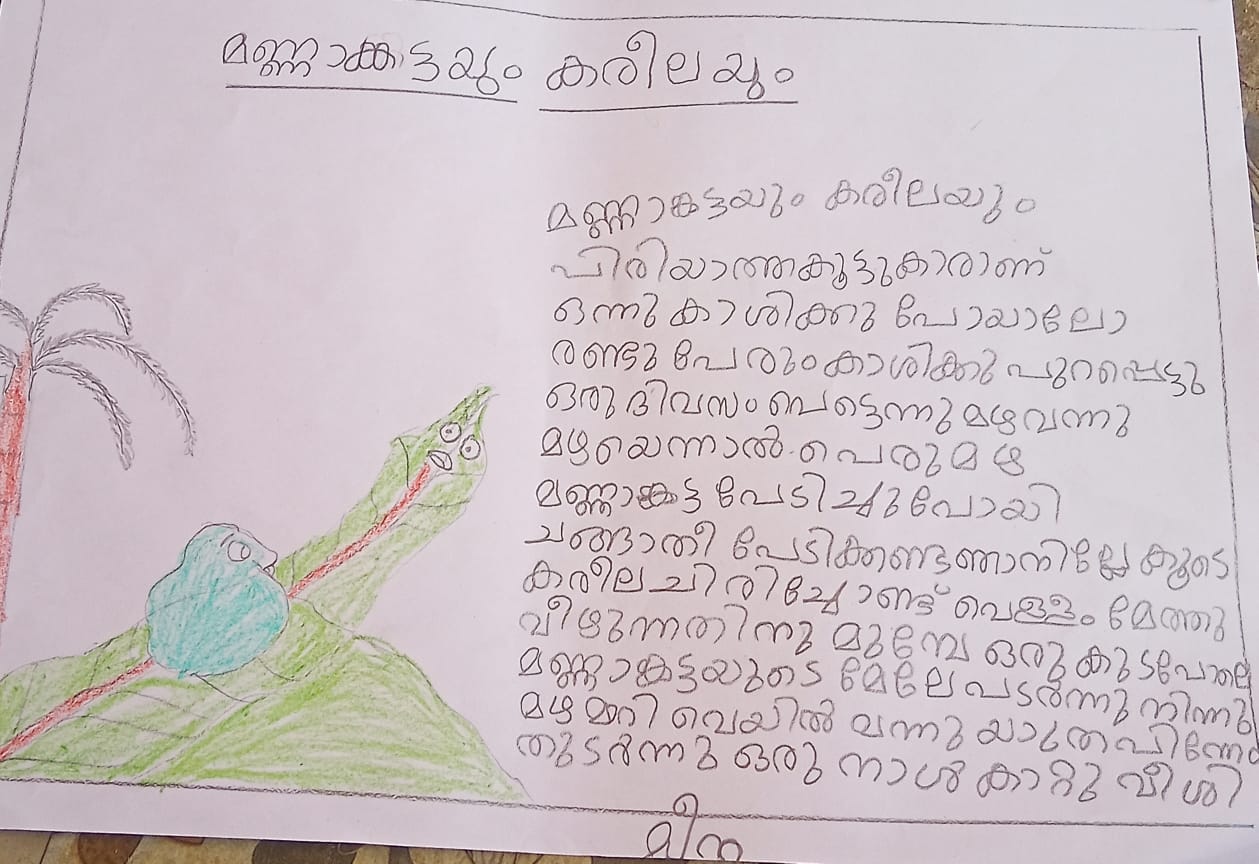 മണ്ണാങ്കട്ടയും കരീലയും
മണ്ണാങ്കട്ടയും കരീലയും
പിരിയാത്തകൂട്ടുകാരാണ്
ഒന്നു കാശിക്കു പോയാലോ
രണ്ടു പേരും കാശിക്കു പുറപ്പെട്ടു
ഒരു ദിവസം പെട്ടെന്നു മഴ വന്നു
മഴയെന്നാൽ പെരുമഴ
മണ്ണാങ്കട്ട പേടിച്ചുപോയി
ചങ്ങാതീ പേടിക്കണ്ട ഞാനില്ലേ കൂടെ
കരീല ചിരിച്ചോണ്ട് വെള്ളം മേത്തു
വീഴുന്നതിനു മുമ്പേ ഒരു കുടപോലെ
മണ്ണാങ്കട്ടയുടെ മേലേ പടർന്നു നിന്നു
മഴ മാറി വെയിൽ വന്നു യാത്ര പിന്നേ
തുടർന്നു ഒരു നാൾ കാറ്റു വീശി
മീന